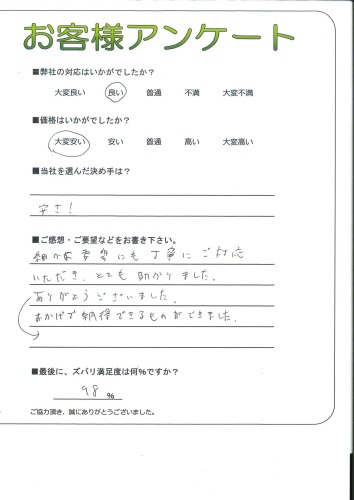 お客様アンケート
■弊社の対応はいかがでしたか？
大変良い 良い 普通 不満 大変不満
■価格はいかがでしたか？
大変安い 安い 普通 高い 大変高い
■当社を選んだ決め手は？
安さ！
■ご感想・ご要望などをお書き下さい。
細かな要望にも丁寧にご対応
いただき、とても助かりました。
ありがとうございました。
おかげで納得できるものができました。
■最後に、ズバリ満足度は何％ですか？
98 ％
ご協力頂き、誠にありがとうございました。